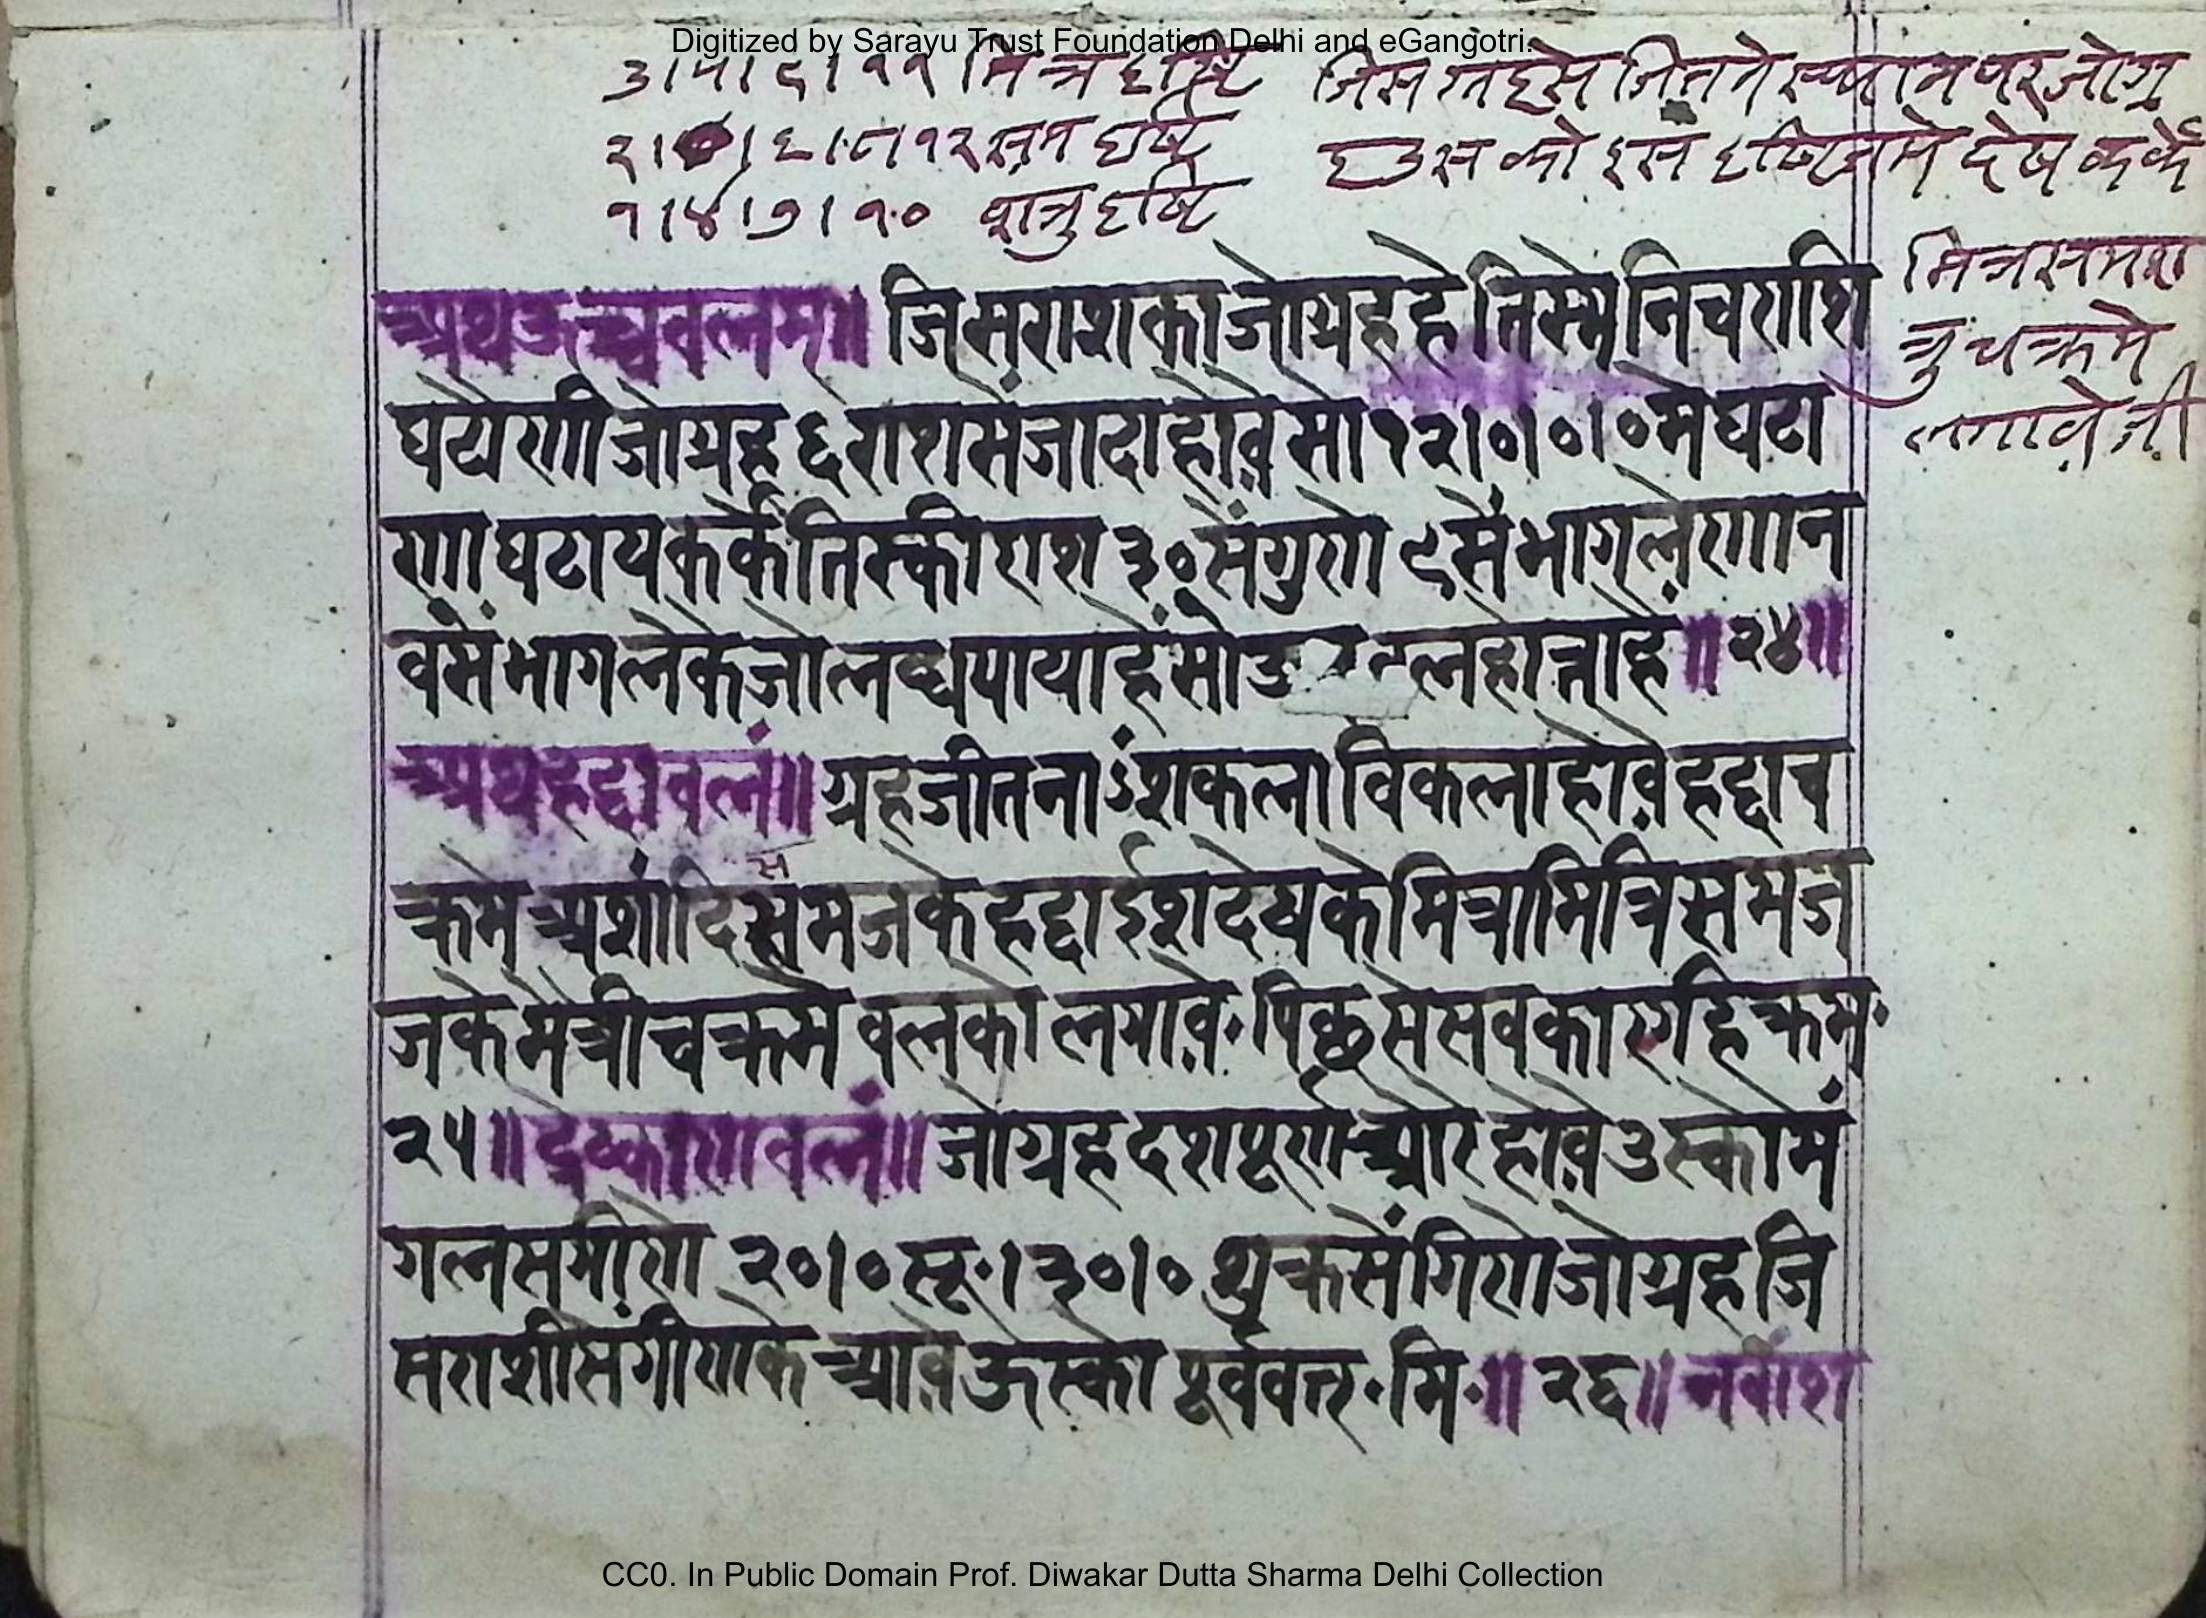 Digitized by Sarayu Trust Foundation Delhi and eGangotri.
३।५।९।११ मित्र दृष्टि
२। ।६।८।१२ सम दृष्टि
१।४।७।१० शत्रु दृष्टि
जिस ग्रहसे जितने स्थान पर जो ग्र
ह उसको इस दृष्टि देष कर्के
मित्र सम श
त्रु चक्र मे
लगावे जी
अथ ऊच्चवलम्॥ जिस राश का जो ग्रह हे तिस्मे निच राशि
घटौणी जो ग्रह ६ राश सें जादा होवे सो १२।०।०।० मे घटा
णा घटाय कर्के तिस्की राश ३० सें गुणो ९ सें भाग लेणा न
व सें भाग लेके जो लब्ध पाया हें सो ल होत्ना हें॥ २४॥
अथ हद्दा वलं॥ ग्रह जीतनाऽंश कला विकला होवे हद्दा च
क्रमे अशांदि स मज के हद्दा ईश देष के मित्रामित्रि समज
जके मैत्री चक्रमे वलको लगावे॰ पिछसे सवका एगहि क्रम॰
२५॥ द्रेष्काण वलं॥ जो ग्रह दश पूर्ण औरे होवे उस्को मं
गल स गीणो २०।० सू॰।३०।० शुक्र सें गिणो जो ग्रह जि
स राशी सें गीणके आवे ऊस्को पूर्ववत्॰ मि॰॥ २६॥ नवांश
CC0. In Public Domain Prof. Diwakar Dutta Sharma Delhi Collection